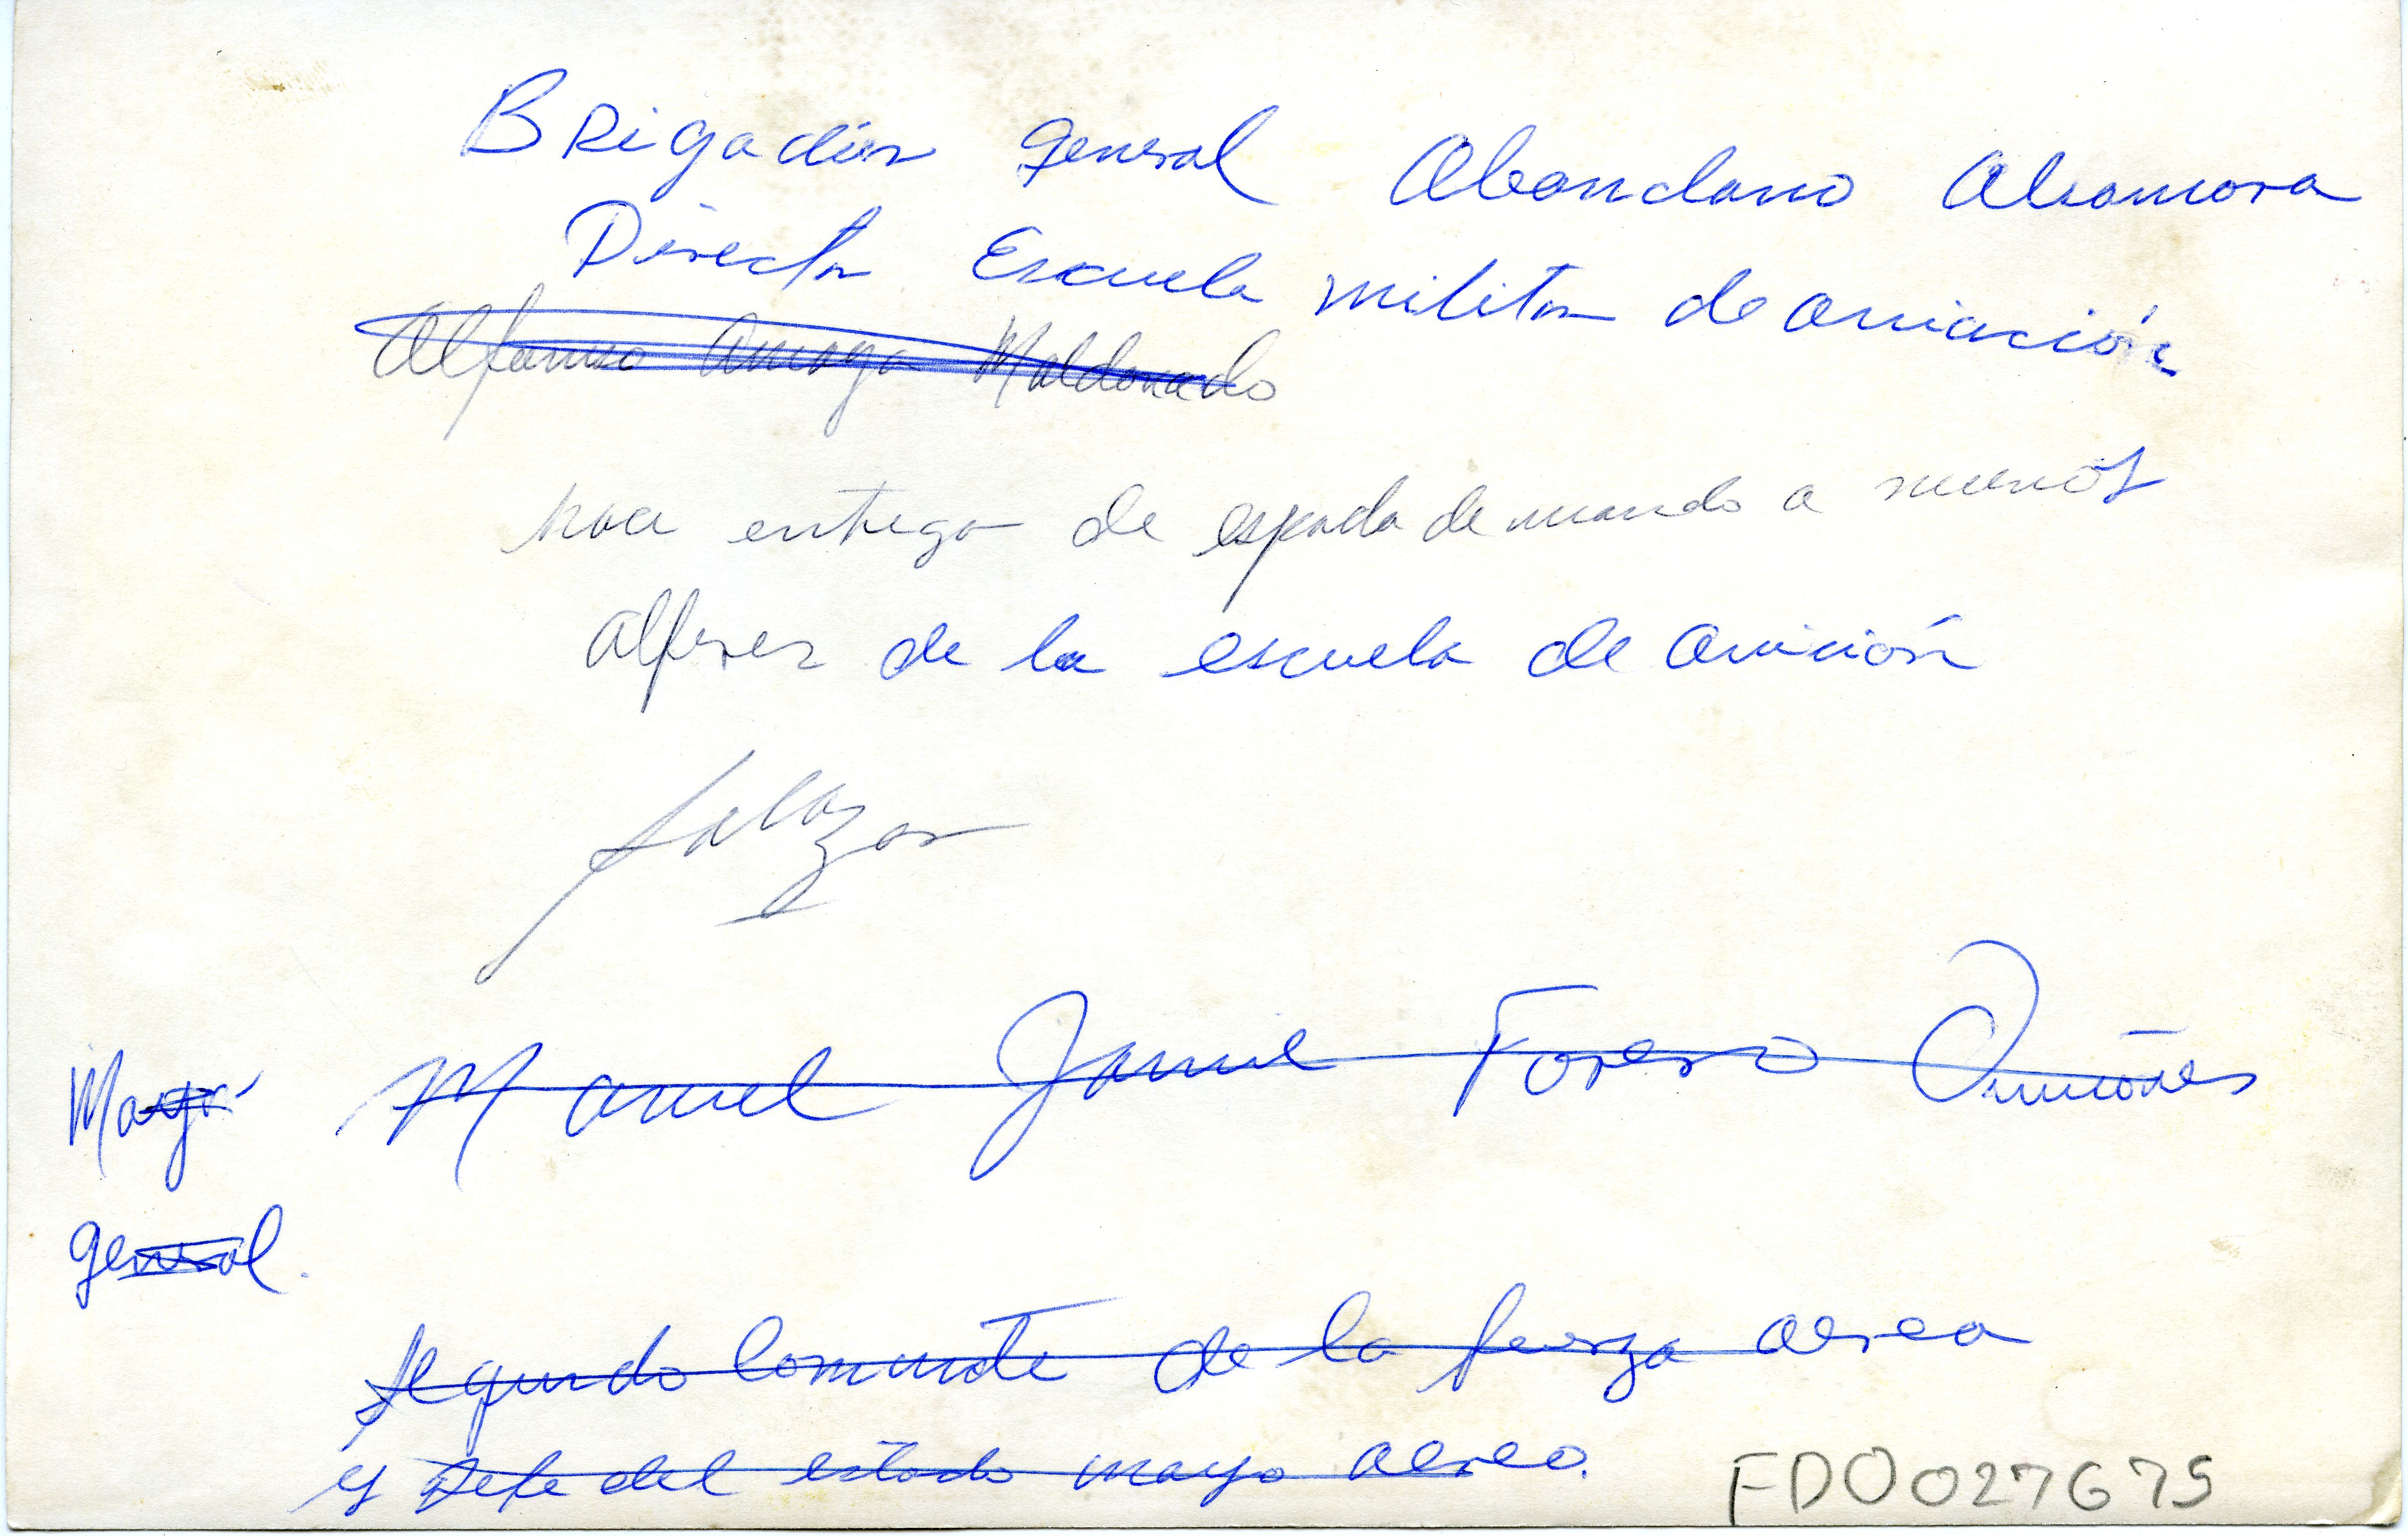 BRigadier general Abondano Alsamora
Director Escuela militar de aviación
Alfonso Amaya Maldonado
hace entrega de espada de mando a nuevos
alferes de la escuela de aviación
Salazar
Mayor Manuel Jaime Forero Quiñones
general.
Segundo Comndte de la fuerza aerea
y Jefe del estado mayo aereo.
FDO027675